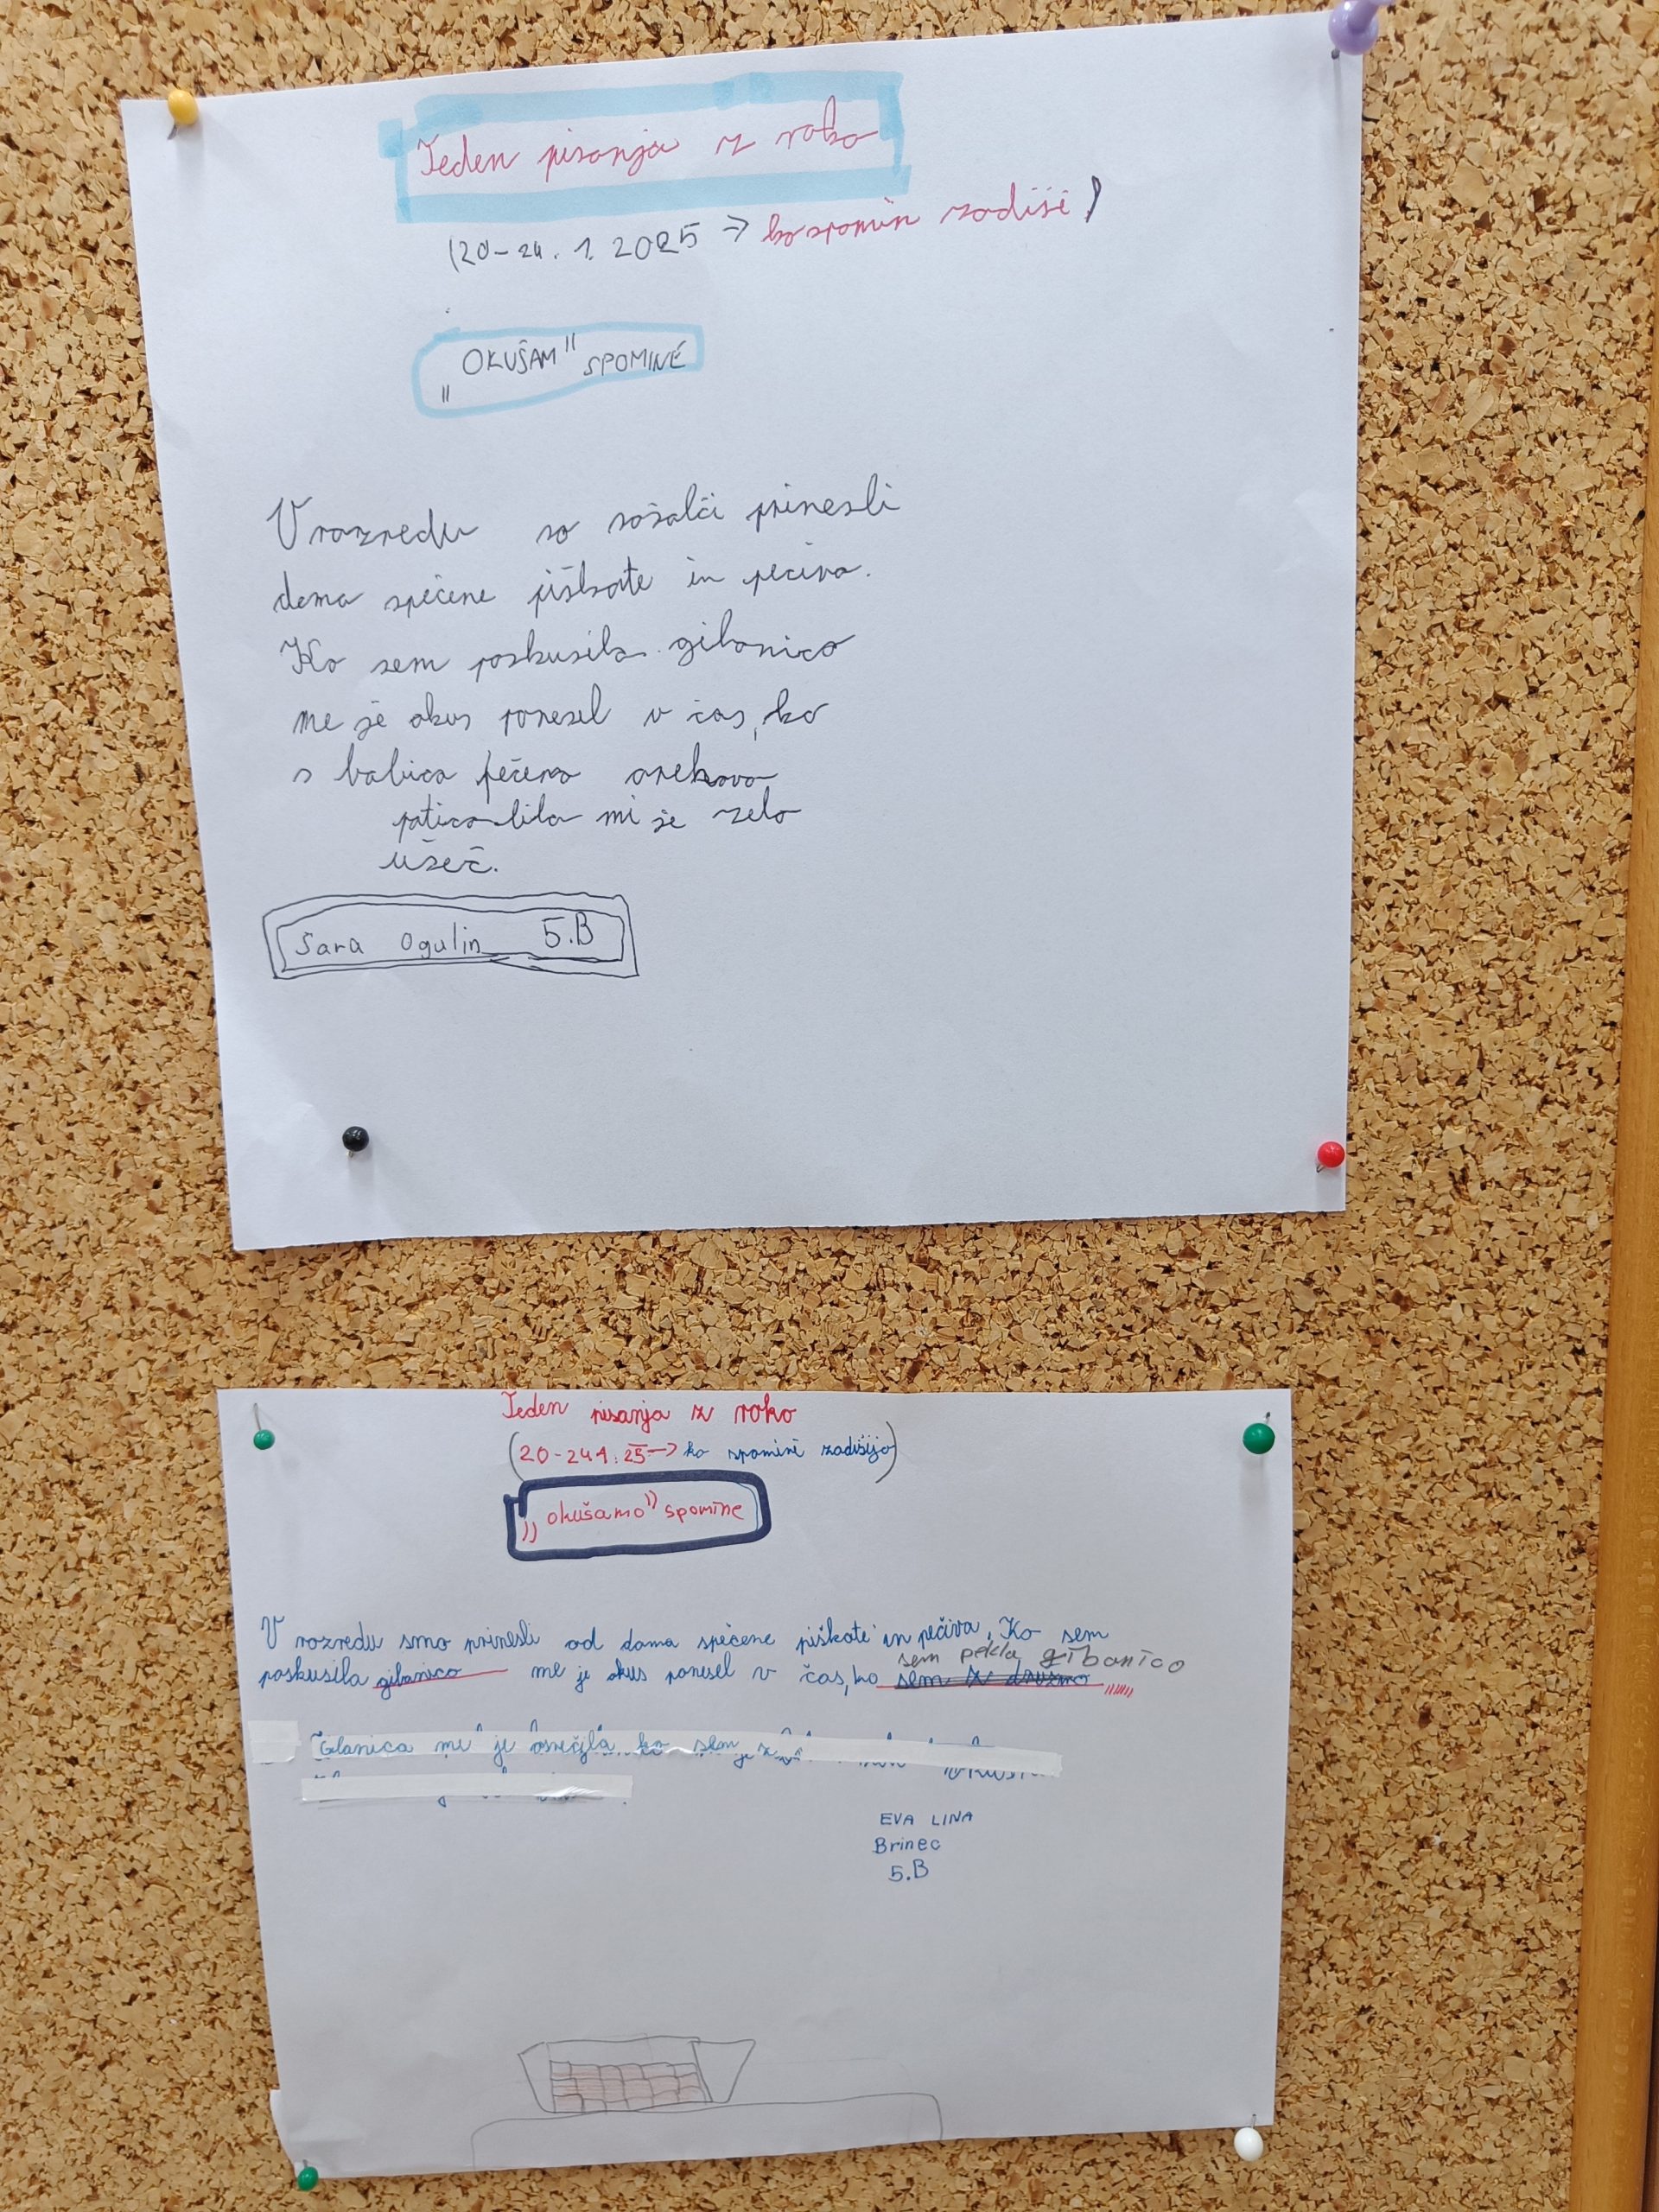 Teden pisanja z roko
(20-24. 1. 2025 → ko spomin zadiši)
„OKUŠAM" SPOMINE
V razredu so sošalči prinesli
doma spečene piškote in peciva.
Ko sem poskusila gibanico
me je okus ponesel v čas, ko
s babico pečemo orehovo
potico bila mi je zelo
všeč.
Sara Ogulin 5.B
Teden pisanja z roko
(20-24 1. 25 → ko spomini zadišijo)
„okušamo" spomine
V razredu smo prinesli od doma spečene piškote in pečiva. Ko sem
sem pekla gibanico
poskusila gibanico me je okus ponesel v čas, ko sem z družino
me je ko sem
EVA LINA
Brinec
5.B